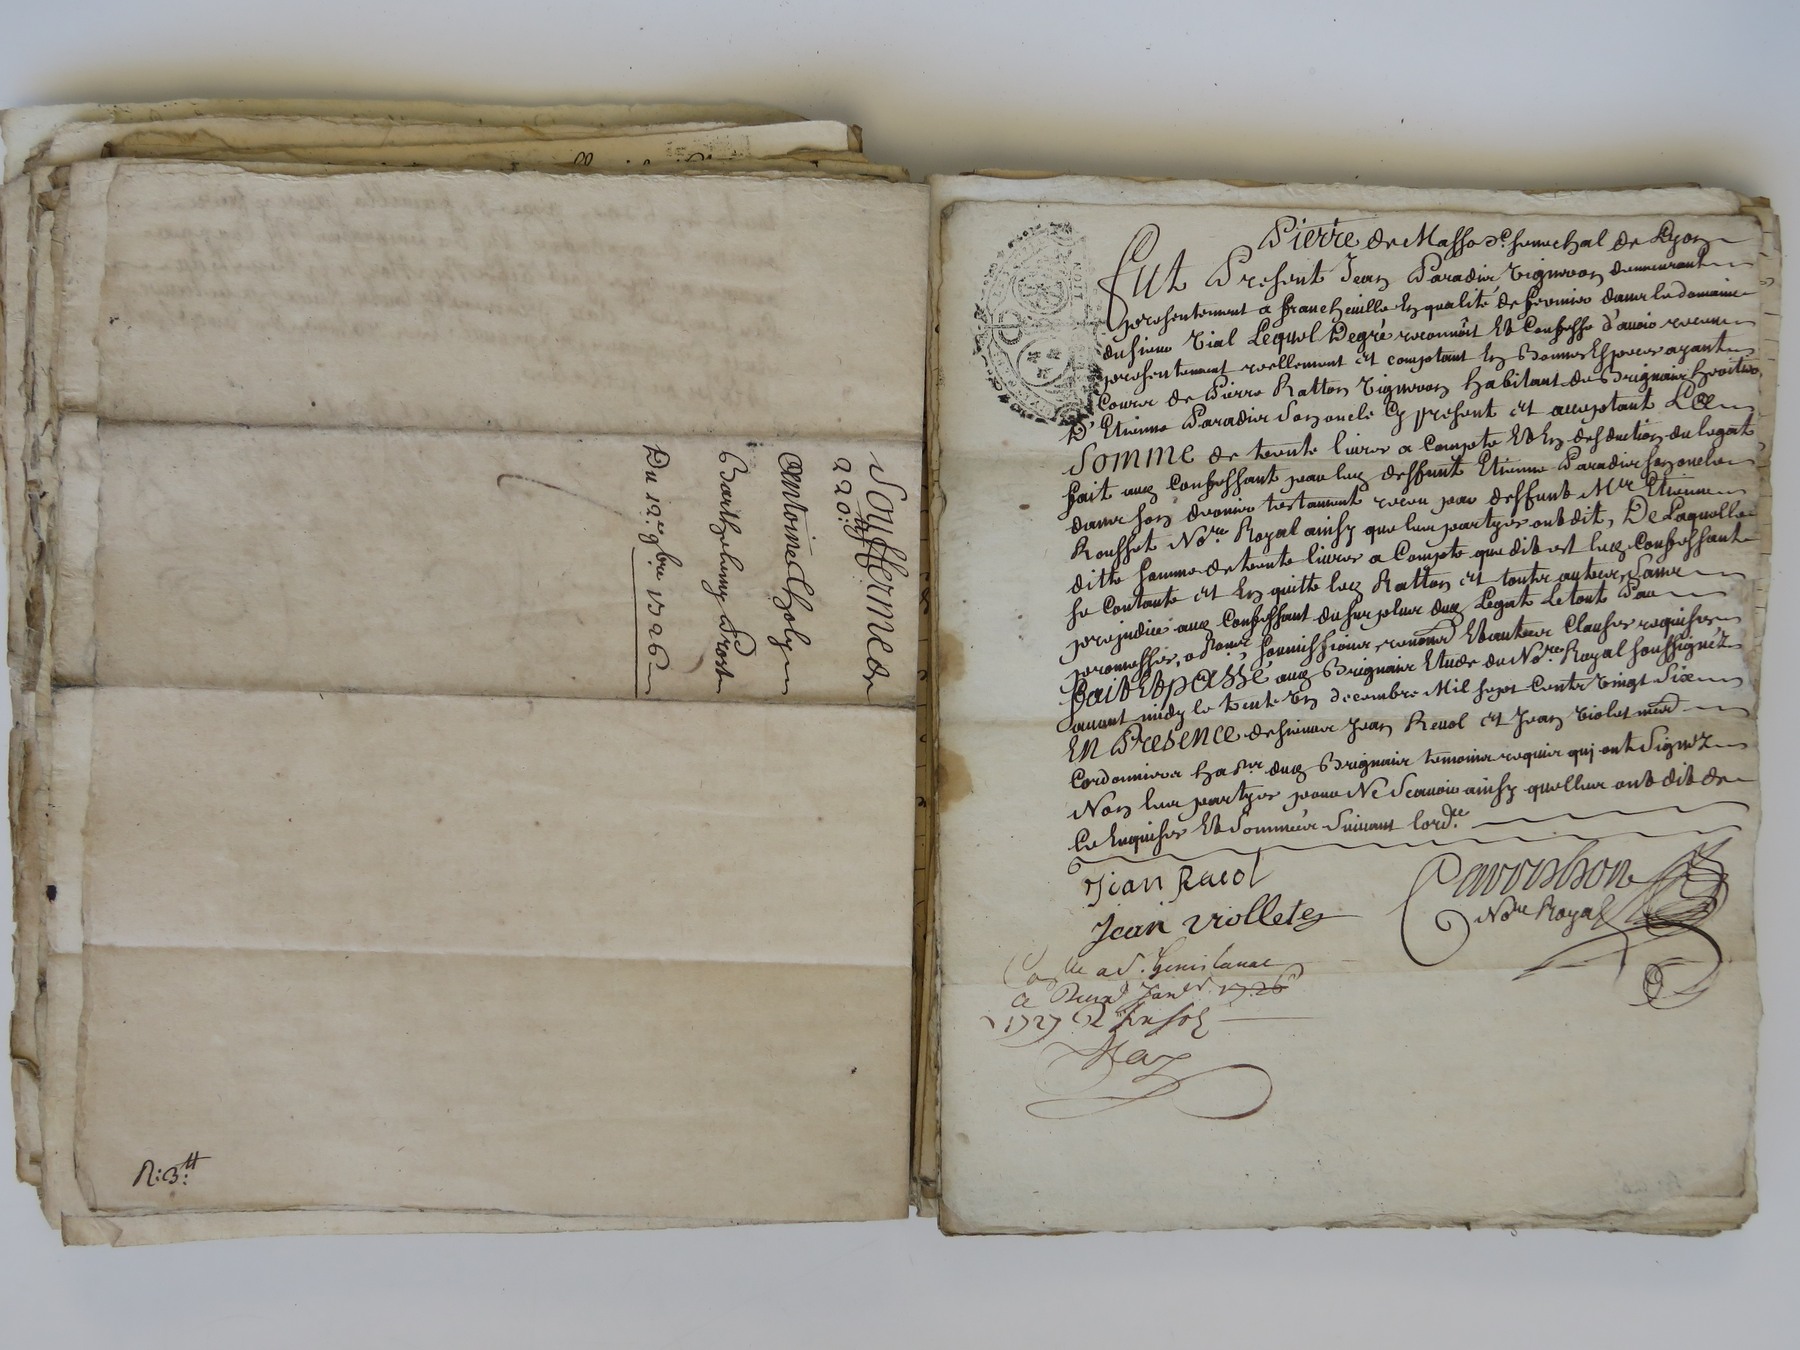 Soufferme de
220:ᵗᵗ
Antoine Choly
Barthelemy Prost
Du 12.ᵉ 9bre 1726
R: 3:ᵗᵗ
Pierre de Masso sc. senechal de Lyon
Fut Present Jean Paradis vigneron demeurant
presentement a francheuille en qualité de fermier dans le domaine
du sieur Vial Lequel De gré reconnoit Et Confesse d'auoir receu
presentement reellement et comptant En Bonnes Especes ayant
Cours de Pierre Ratton vigneron habitant de Brignais heritier
D'Etienne Paradis son oncle Cy present et acceptant La
Somme de trente liures a Compte Et En desduction du legat
fait aud Confessant par led deffunt Etienne Paradis son oncle
dans son dernier testament receu par deffunt Mᵉ Etienne
Rousset Noʳᵉ Royal ainsy que les partyes ont dit, De Laquelle
ditte somme de trente liures a Compte que dit est led Confessant
se Contante et En quitte led Ratton et touts autres sans
prejudice aud Confessant du surplus dud Legat Le tout Par
promesses, obligˢ soumissions, renonᵒⁿ Et autres Clauses requises
fait Et passé aud Brignais Etude du Noʳᵉ Royal soussigné
auant midy le trente un decembre Mil sept Cents vingt Six
En Presence de sieurs Jean Reuol et Jean Violet mᵈ
Cordonniers habᵗˢ dud Brignais temoins requis qui ont signez
Non les partyes pour Ne Scauoir ainsy quelles ont dit de
Ce Enquises Et Sommées Suiuant lordᶜᵉ
Jean Reuol
Jean Violletes
Noʳᵉ Royal
Conᵗˡᵉ a S. Genis laual
Le Janᵛ. 1726
1727 R sols